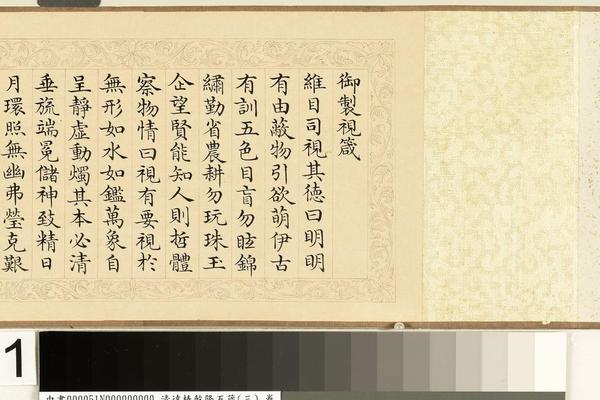 御製視箴
維目司視其德曰明明
有由蔽物引欲萌伊古
有訓五色目盲勿眩錦
繡勤省農耕勿玩珠玉
企望賢能知人則哲體
察物情曰視有要視於
無形如水如鑑萬象自
呈靜虛動燭其本必清
垂旒端冕儲神致精日
月環照無幽弗瑩克艱
1
000051N000000000 清達椿乾隆五箴(三) 卷